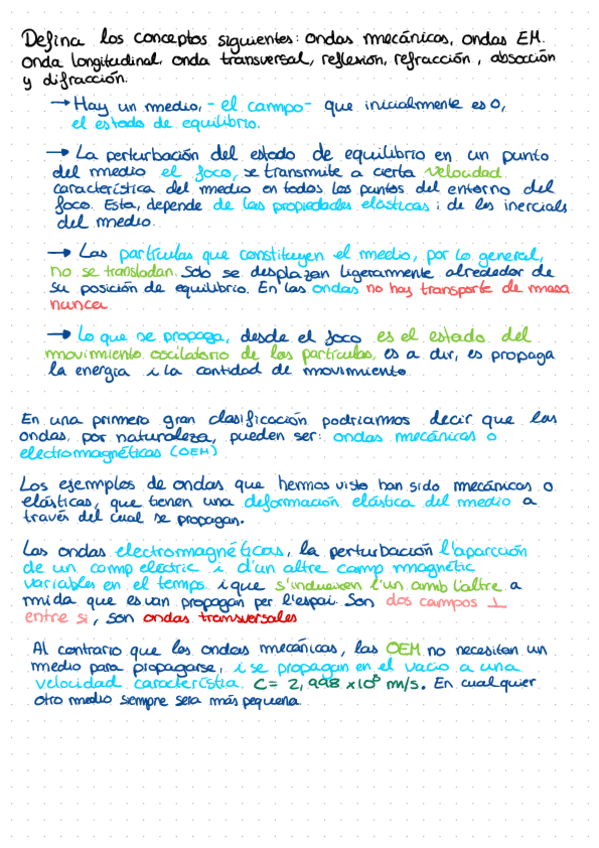 Defina los conceptos siguientes: ondas mecánicas, ondas EM.
onda longitudinal, onda transversal, reflexión, refracción, absoción
y difracción.
→ Hay un medio, - el campo - que inicialmente es 0,
el estado de equilibrio.
→ La perturbación del estado de equilibrio en un punto
del medio el foco, se transmite a cierta velocidad
característica del medio en todos los puntos del entorno del
foco. Esta, depende de las propiedades elásticas i de les inercials
del medio.
→ Las partículas que constituyen el medio, por lo general,
no se transladan. Solo se desplazan ligeramente alrededor de
su posición de equilibrio. En las ondas no hay transporte de masa
nunca
→ Lo que se propaga, desde el foco es el estado del
movimiento oscilatorio de las partículas, es a dir, es propaga
la energia i la cantidad de movimiento
En una primera gran clasificación podríamos decir que las
ondas, por naturaleza, pueden ser: ondas mecánicas o
electromagnéticas (OEM)
Los ejemplos de ondas que hemos visto han sido mecánicas o
elásticas, que tienen una deformación elástica del medio a
través del cual se propagan.
Las ondas electromagnéticas, la perturbación l'aparcción
de un camp electric i d'un altre camp magnétic
variables en el temps i que s'indueixen l'un amb l'altre a
mida que es van propagan per l'espai. Son dos campos ⊥
entre si, son ondas transversales
Al contrario que las ondas mecánicas, las OEM no necesitan un
medio para propagarse, i se propagan en el vacio a una
velocidad caracterÍstia c = 2,998 x10⁸ m/s. En cualquier
otro medio siempre sera más pequeña